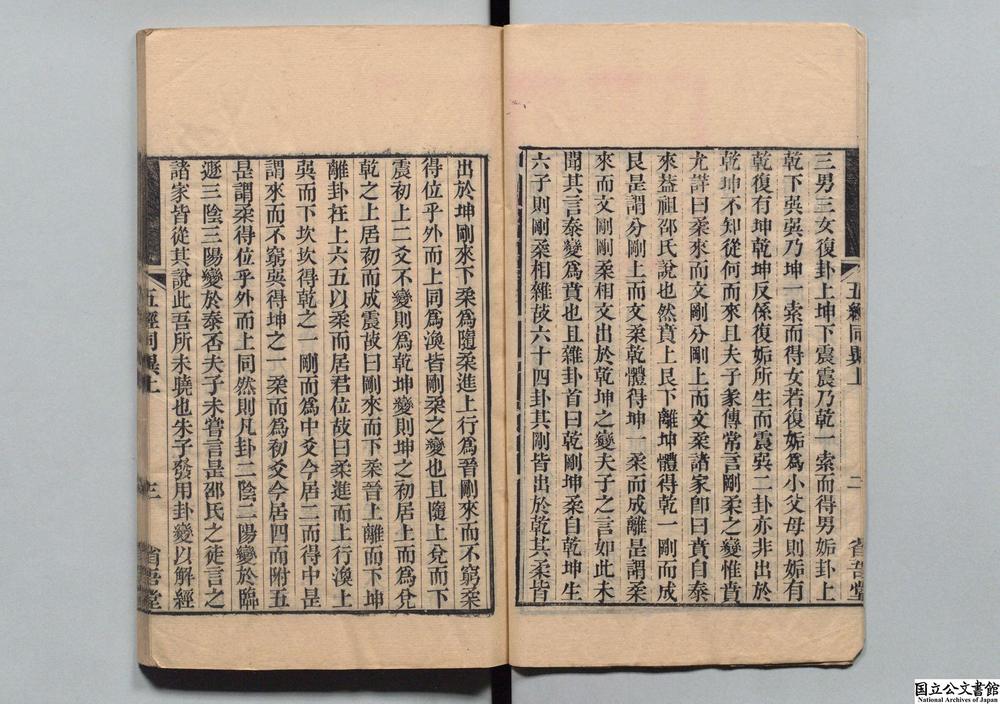 三男三女復卦上坤下震震乃乾一索而得男姤卦上
乾下巽巽乃坤一索而得女若復姤爲小父母則姤有
乾復有坤乾坤反係復姤所生而震巽二卦亦非出於
乾坤不知從何而來且夫子彖傳常言剛柔之變惟賁
尤詳曰柔來而文剛分剛上而文柔諸家卽曰賁自泰
來葢祖邵氏說也然賁上艮下離坤體得乾一剛而成
艮是謂分剛上而文柔乾體得坤一柔而成離是謂柔
來而文剛剛柔相文出於乾坤之變夫子之言如此未
聞其言泰變爲賁也且雜卦首曰乾剛坤柔自乾坤生
六子則剛柔相雜故六十四卦其剛皆出於乾其柔皆
五經同異上
二
省吾堂
出於坤剛來下柔爲隨柔進上行爲晉剛來而不窮柔
得位乎外而上同爲渙皆剛柔之變也且隨上兌而下
震初上二爻不變則爲乾坤變則坤之初居上而爲兌
乾之上居初而成震故曰剛來而下柔晉上離而下坤
離卦在上六五以柔而居君位故曰柔進而上行渙上
巽而下坎坎得乾之一剛而爲中爻今居二而得中是
謂來而不窮巽得坤之一柔而爲初爻今居四而附五
是謂柔得位乎外而上同然則凡卦二陰二陽變於臨
遯三陰三陽變於泰否夫子未嘗言是邵氏之徒言之
諸家皆從其說此吾所未曉也朱子發用卦變以解經
五經同異上
三
省吾堂
国立公文書館
National Archives of Japan